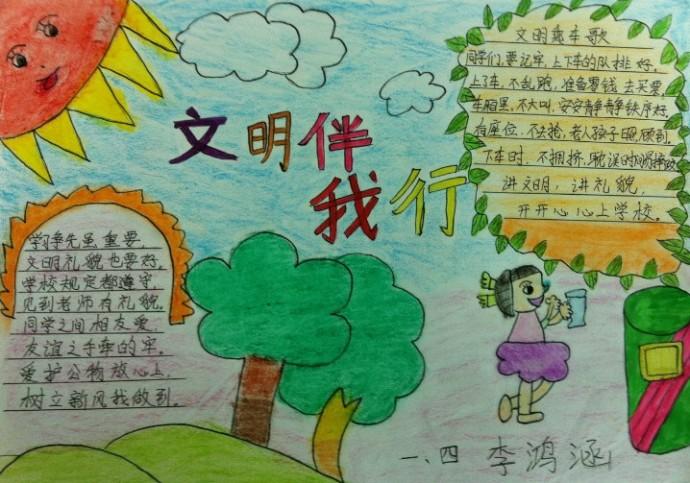 文明伴
我行
文明乘车歌
同学们,要记牢,上下车的队排好。
上了车,不乱跑,准备零钱去买票。
车厢里,不大叫,安安静静秩序好。
有座位,不大抢,老人孩子照顾到。
下车时,不拥挤,
讲文明,讲礼貌,
开开心心上学校。
学习虽重要,
文明礼貌也要好。
学校规定都遵守,
见到老师有礼貌。
同学之间相友爱,
友谊之手牵的牢。
爱护公物放心上,
树立新风我做到。
一、四 李鸿涵